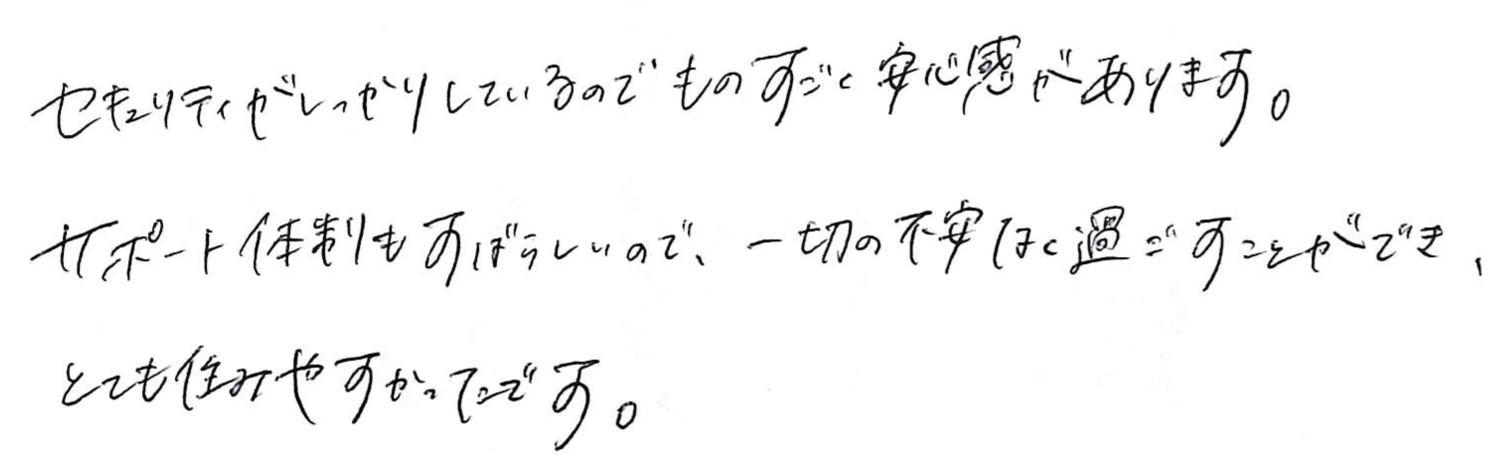 セキュリティがしっかりしているのでものすごく安心感があります。
サポート体制もすばらしいので、一切の不安なく過ごすことができ、
とても住みやすかったです。